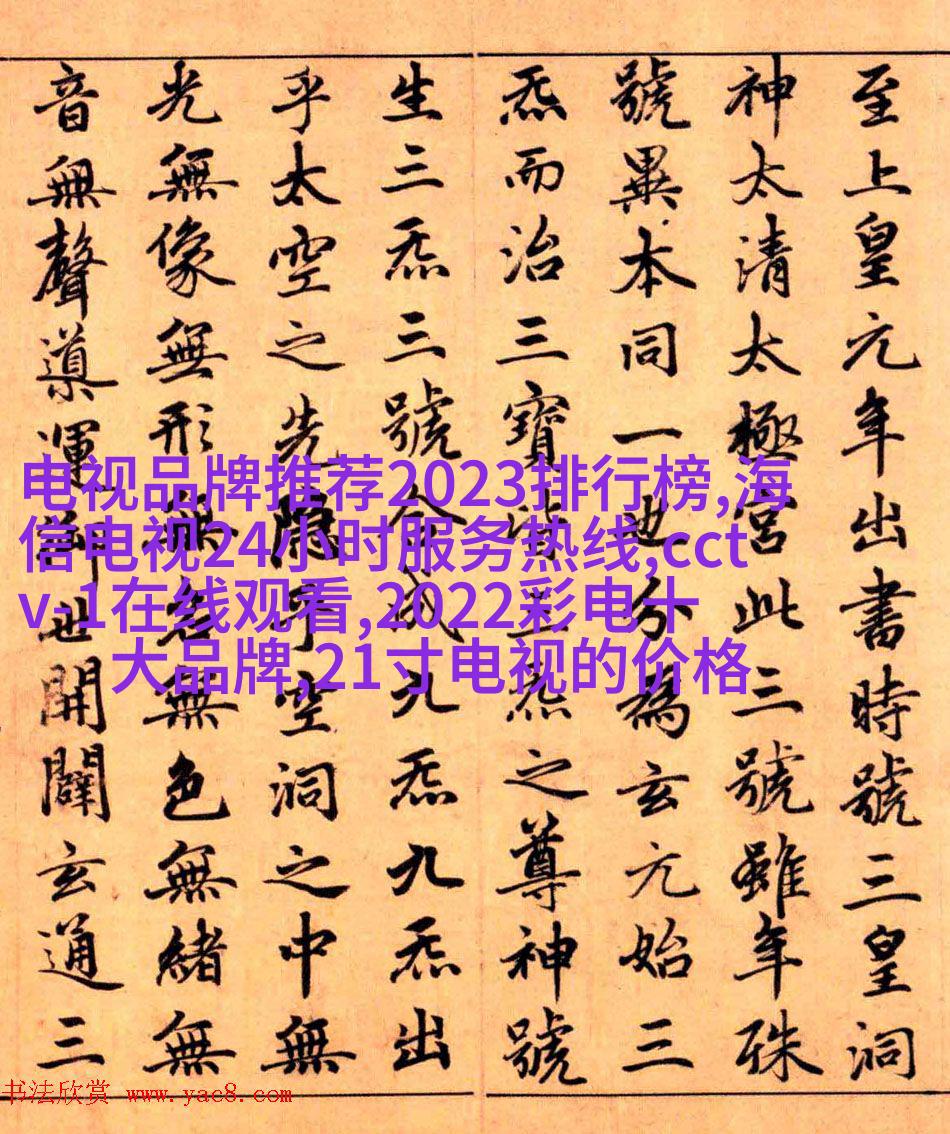 至上皇元年出書時號三皇洞
神太清太極宮此三號雖年殊
號異本同一也分為玄元始三
炁而治三寶皆三炁之尊神號
生三炁三號合成九炁九炁出
乎太空之先隱乎空洞之中無
光無像無形無名無色無緒無
音無聲導運御世開闢玄通三
电视品牌推荐2023排行榜,海
信电视24小时服务热线,cct
v-1在线观看,2022彩电十
大品牌,21寸电视的价格
书法欣赏 www.yac8.com